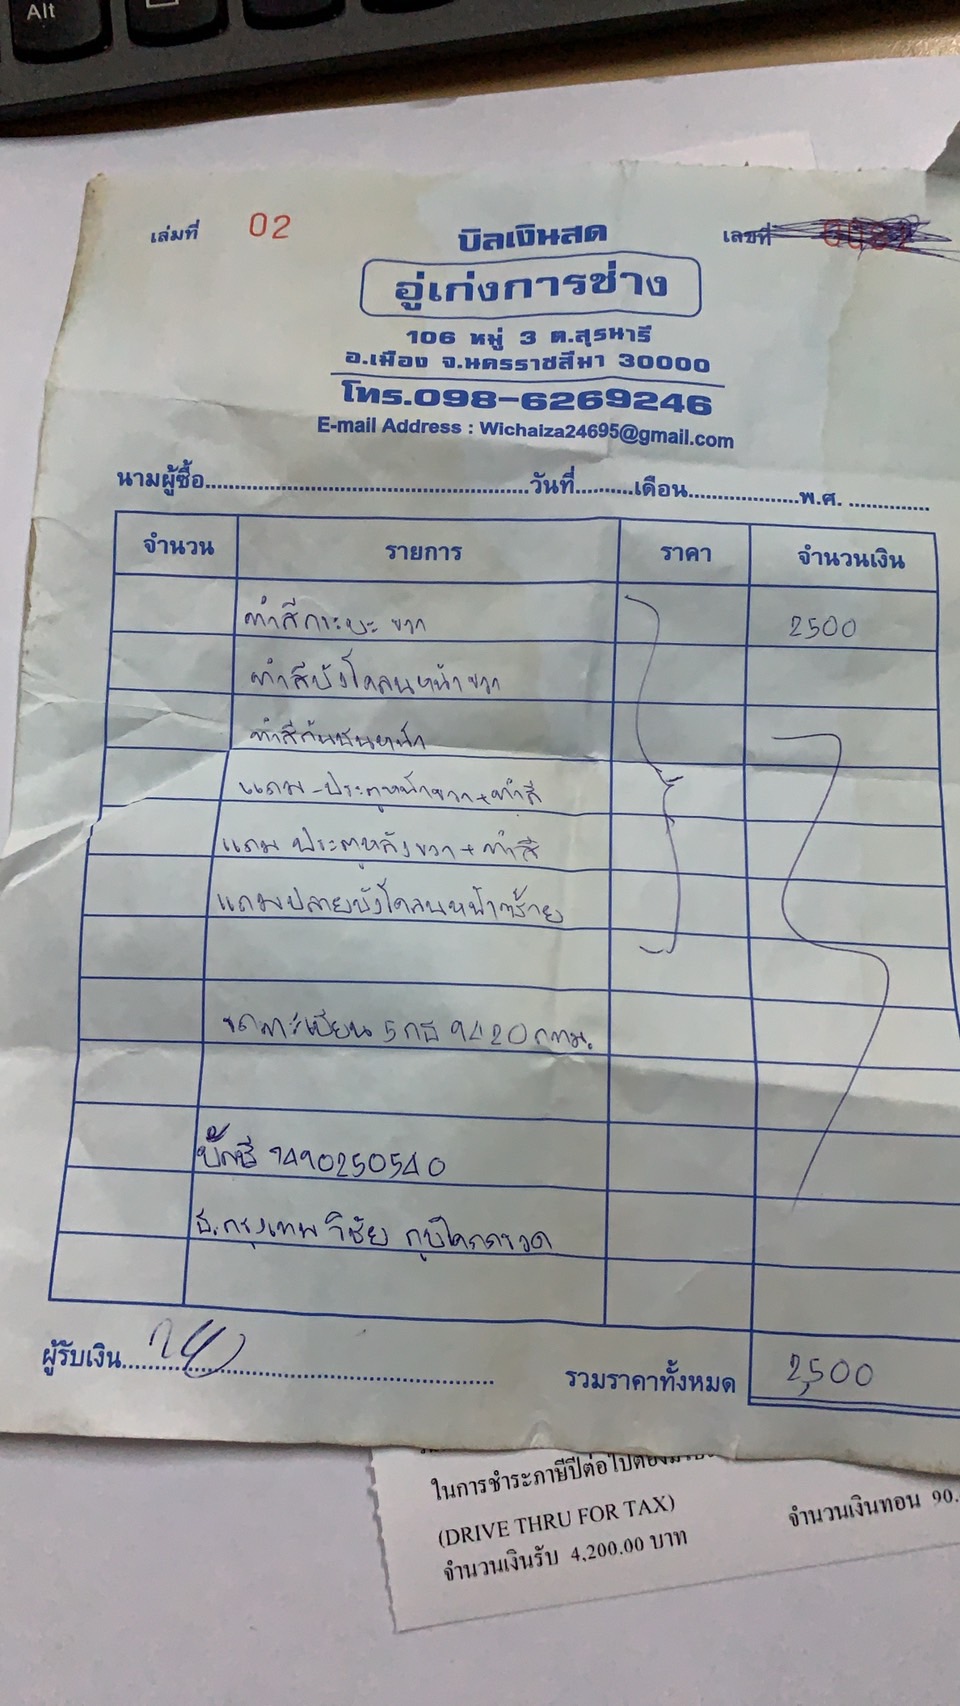 Alt
เล่มที่ 02
บิลเงินสด
เลขที่
อู่เก่งการช่าง
106 หมู่ 3 ต.สุรนารี
อ.เมือง จ.นครราชสีมา 30000
โทร.098-6269246
E-mail Address : Wichaiza24695@gmail.com
นามผู้ซื้อ.....................................................วันที่..........เดือน....................พ.ศ. ...............
จำนวน รายการ ราคา จำนวนเงิน
ทำสีกระบะ ขวา 2500
ทำสีบังโคลนหน้าขวา
ทำสีกันชนหน้า
แถม - ประตูหน้าขวา + ทำสี
แถม ประตูหลังขวา + ทำสี
แถมปลายบังโคลนหน้าซ้าย
รถทะเบียน 5กธ 9420 กทม.
บัญชี 9490250540
ธ.กรุงเทพ วิชัย
ผู้รับเงิน
รวมราคาทั้งหมด 2,500
ในการชำระภาษีปีต่อไป
(DRIVE THRU FOR TAX)
จำนวนเงินรับ 4,200.00 บาท
จำนวนเงินทอน 90.